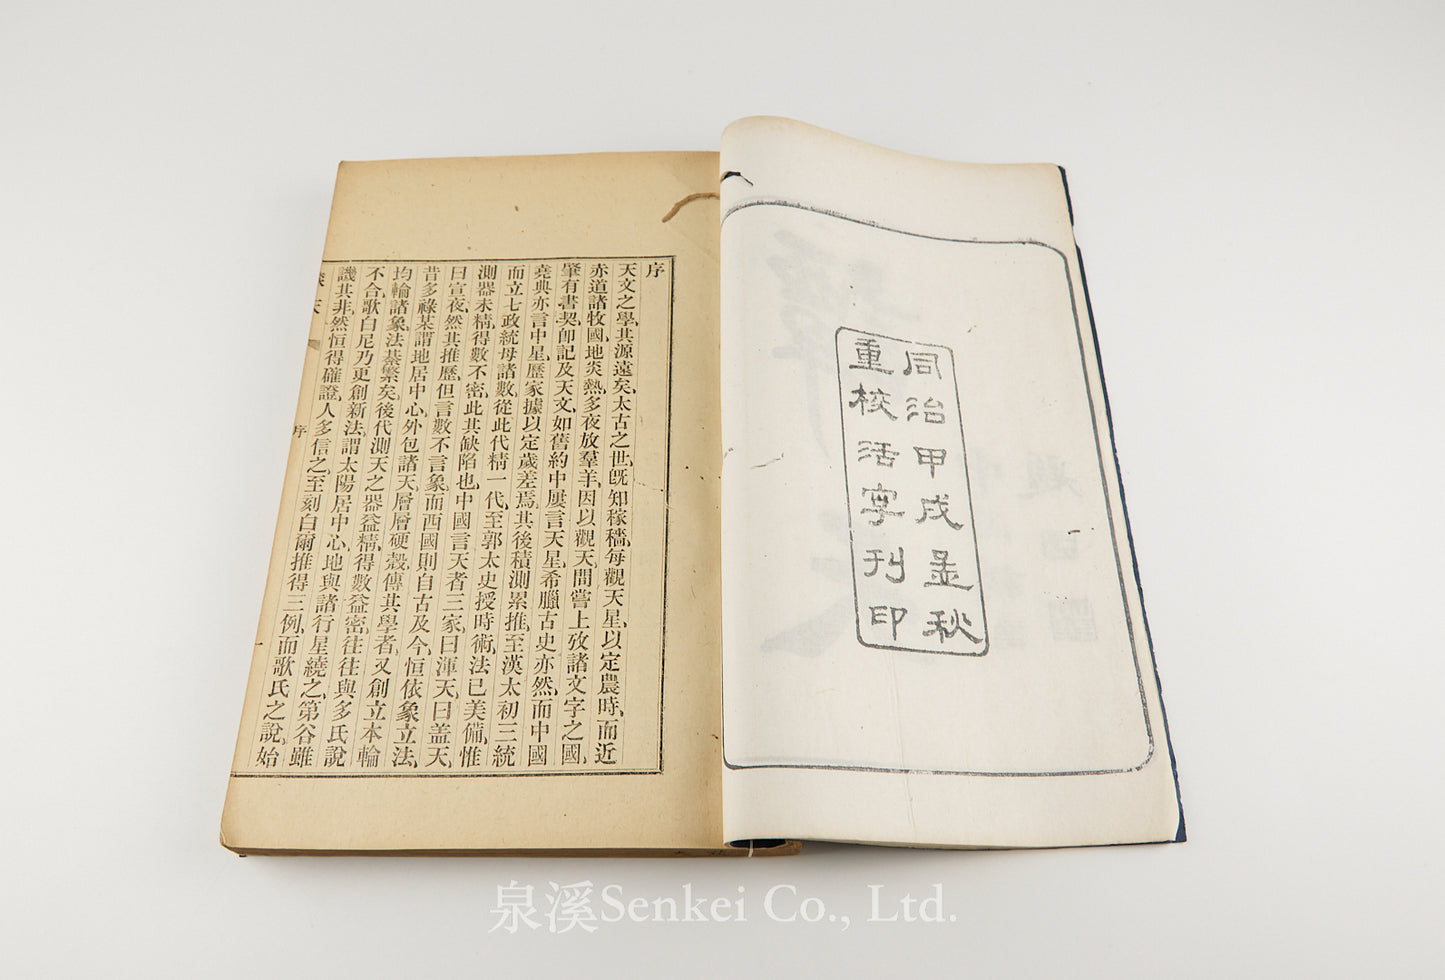 同治甲戌孟秋
重校活字刊印
序
天文之學、其源遠矣、太古之世、既知稼穡、每觀天星、以定農時、而近
赤道諸牧國、地炎熱、多夜放羣羊、因以觀天、間嘗上攷諸文字之國、
肇有書契、卽記及天文、如舊約中屢言天星、希臘古史亦然、而中國
堯典亦言中星、歷家據以定歲差焉、其後積測累推、至漢太初三統
而立七政統母諸數、從此代精一代、至郭太史授時術、法已美備、惟
測器未精、得數不密、此其缺陷也、中國言天者三家、曰渾天、曰蓋天、
曰宣夜、然其推歷、但言數、不言象、而西國則自古及今、恒依象立法、
昔多祿某謂地居中心、外包諸天、層層硬殼、傳其學者、又創立本輪
均輪諸象、法綦繁矣、後代測天之器益精、得數益密、往往與多氏說
不合、歌白尼乃更創新法、謂太陽居中心、地與諸行星繞之、第谷雖
譏其非、然恒得確證、人多信之、至刻白爾推得三例、而歌氏之說始
序
泉溪Senkei Co., Ltd.